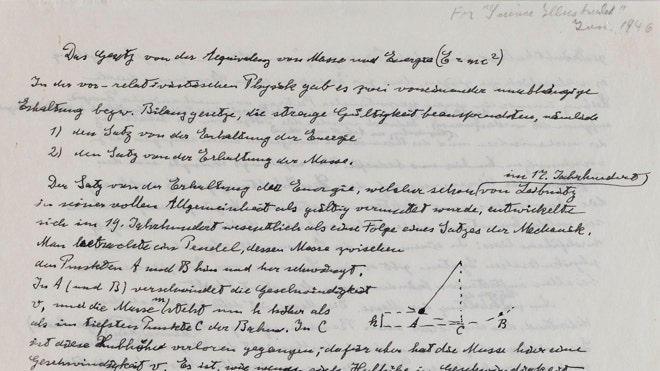 For "Science Illustrated"
Jan. 1946
Das Gesetz von der Aequivalenz von Masse und Energie (E = mc²)
In der vor-relativistischen Physik gab es zwei voneinander unabhängige
Erhaltung bezw. Bilanzgesetze, die strenge Gültigkeit beanspruchten, nämlich
1) den Satz von der Erhaltung der Energie
2) den Satz von der Erhaltung der Masse.
im 17. Jahrhundert
Der Satz von der Erhaltung der Energie, welcher schon von Leibnitz
in seiner vollen Allgemeinheit als gültig vermutet wurde, entwickelte
sich im 19. Jahrhundert wesentlich als eine Folge eines Satzes der Mechanik.
Man betrachte ein Pendel, dessen Masse zwischen
den Punkten A und B hin und her schwingt.
In A (und B) verschwindet die Geschwindigkeit
v, und die Masse m steht um h höher als
als im tiefsten Punkte C der Bahn. In C
h A C B
ist diese Hubhöhe verloren gegangen; dafür aber hat die Masse hier eine
Geschwindigkeit v. Es ist, wie